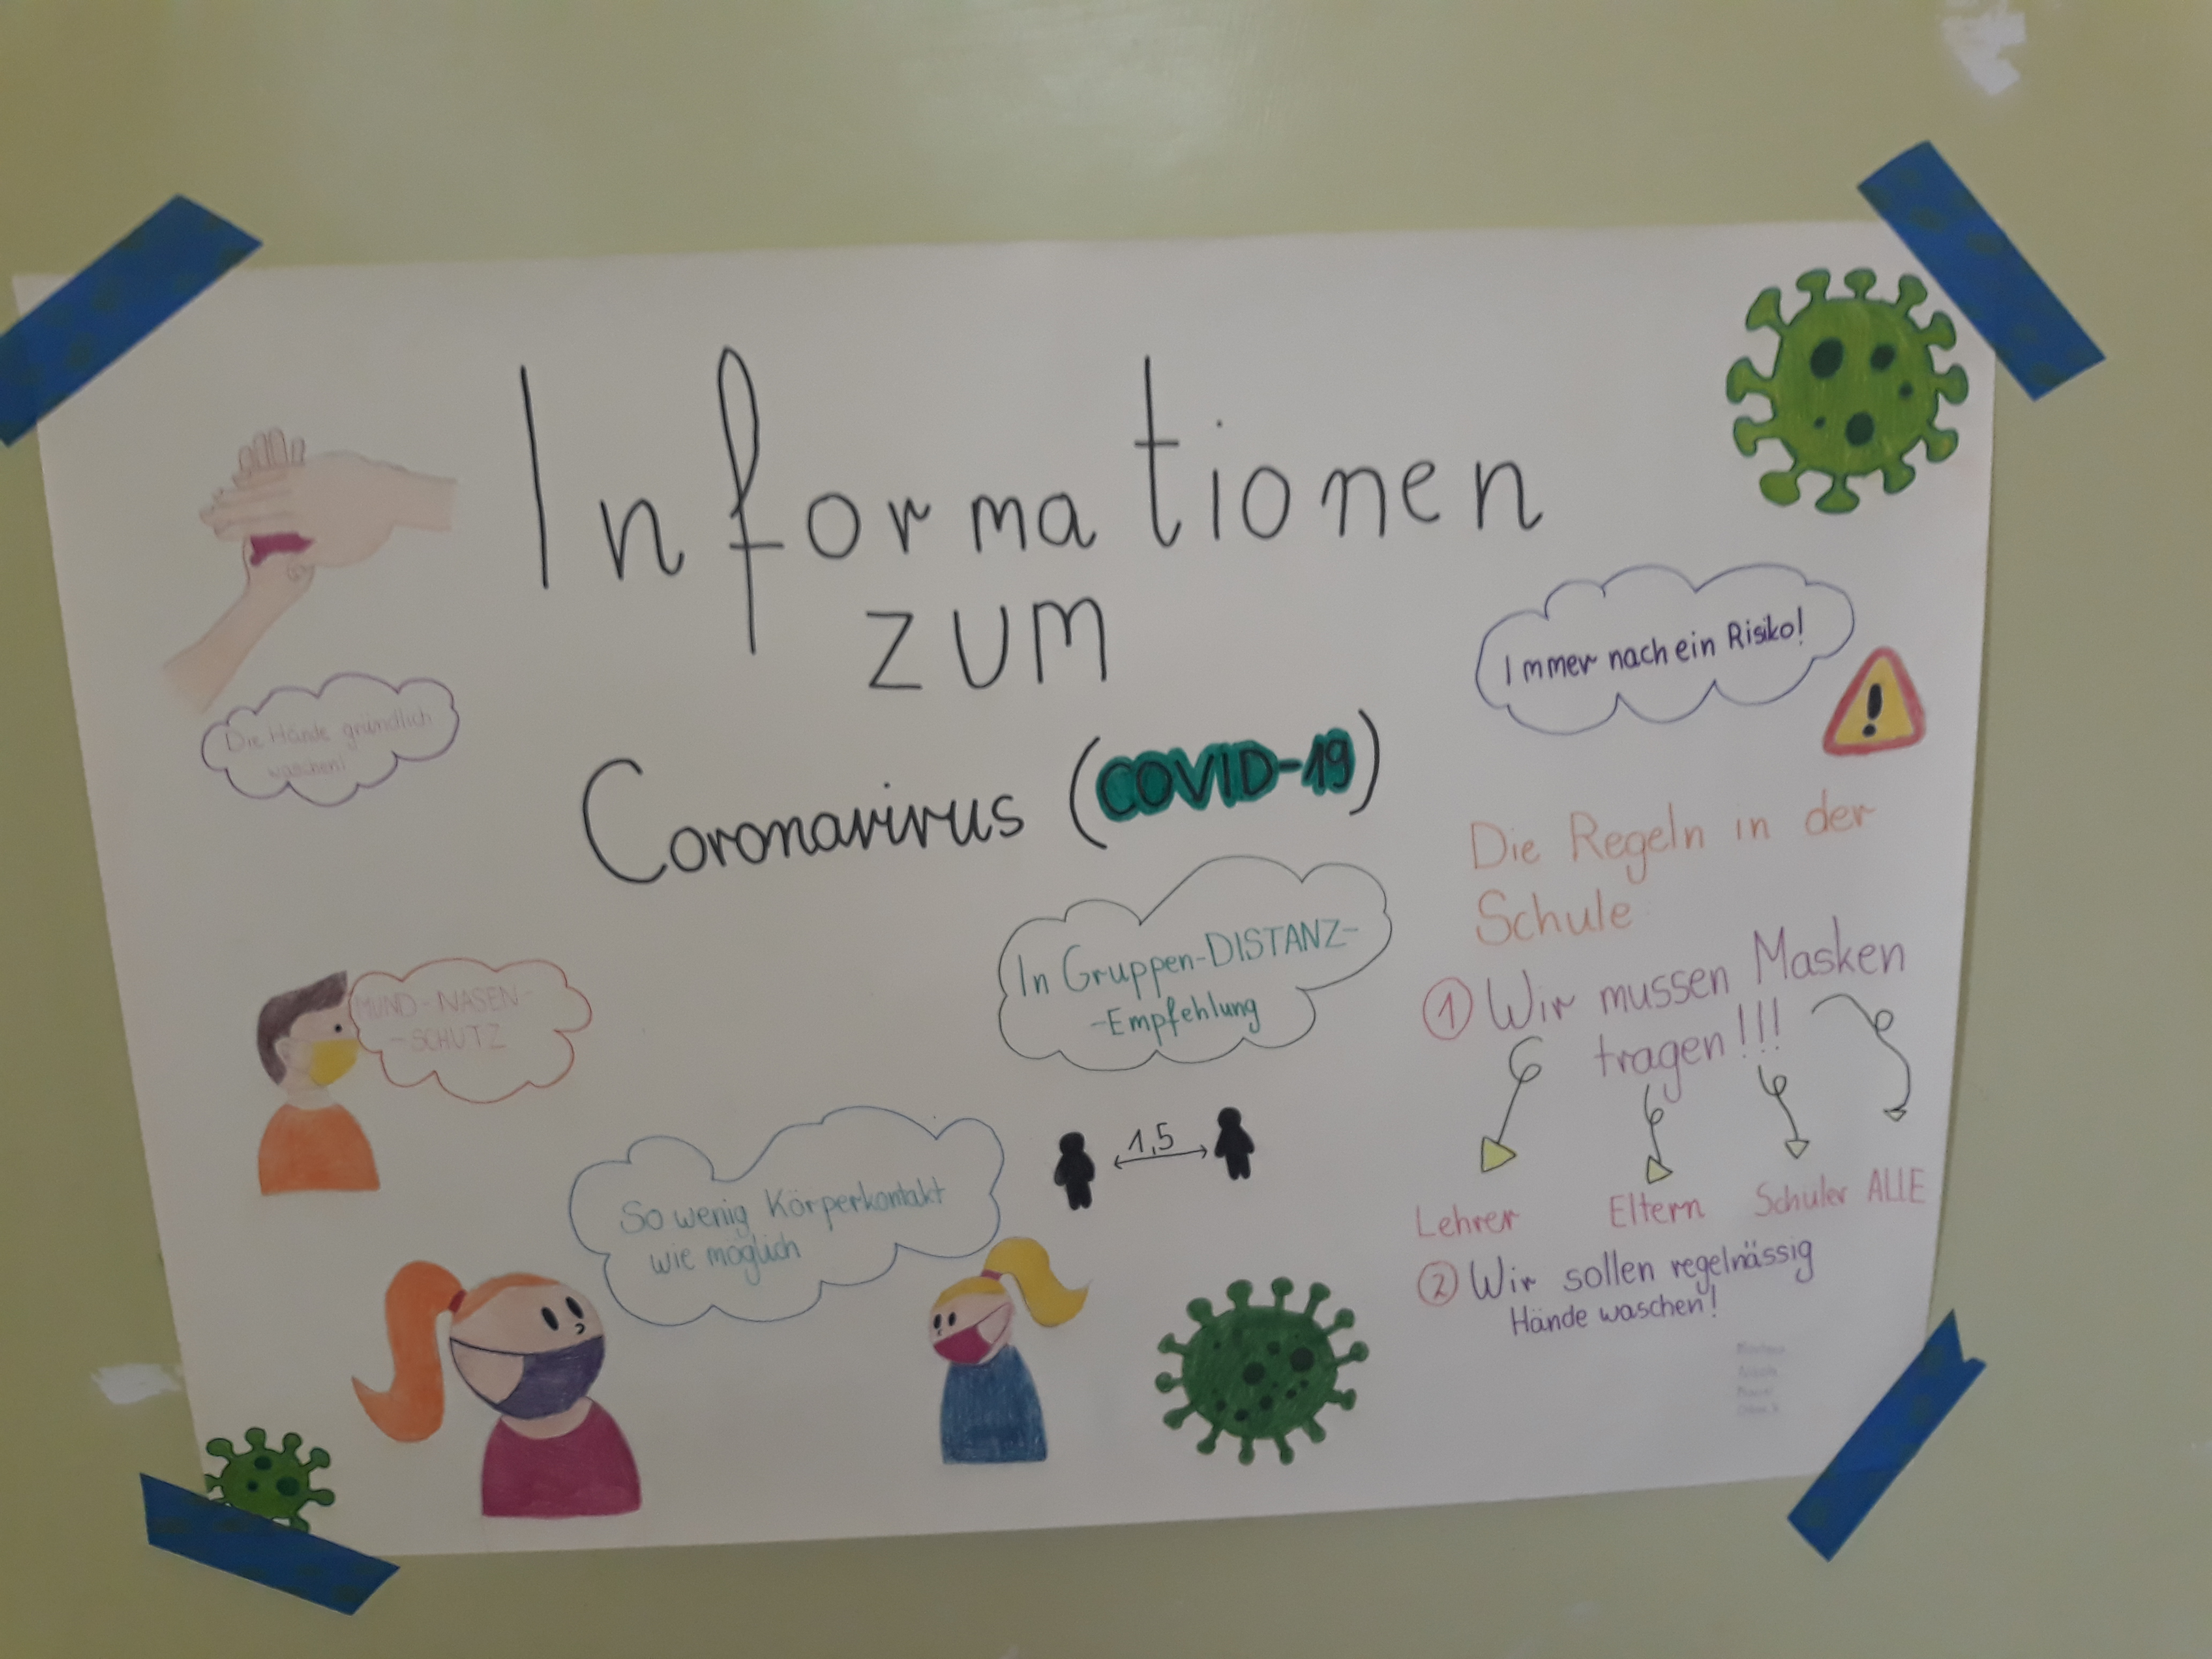 Informationen
zum
Coronavirus (COVID-19)
Die Hände gründlich
waschen!
Immer nach ein Risiko!
MUND-NASEN-
-SCHUTZ
In Gruppen-DISTANZ-
-Empfehlung
1,5
So wenig Körperkontakt
wie möglich
Die Regeln in der
Schule
1 Wir mussen Masken
tragen!!!
Lehrer Eltern Schüler ALLE
2 Wir sollen regelnässig
Hände waschen!